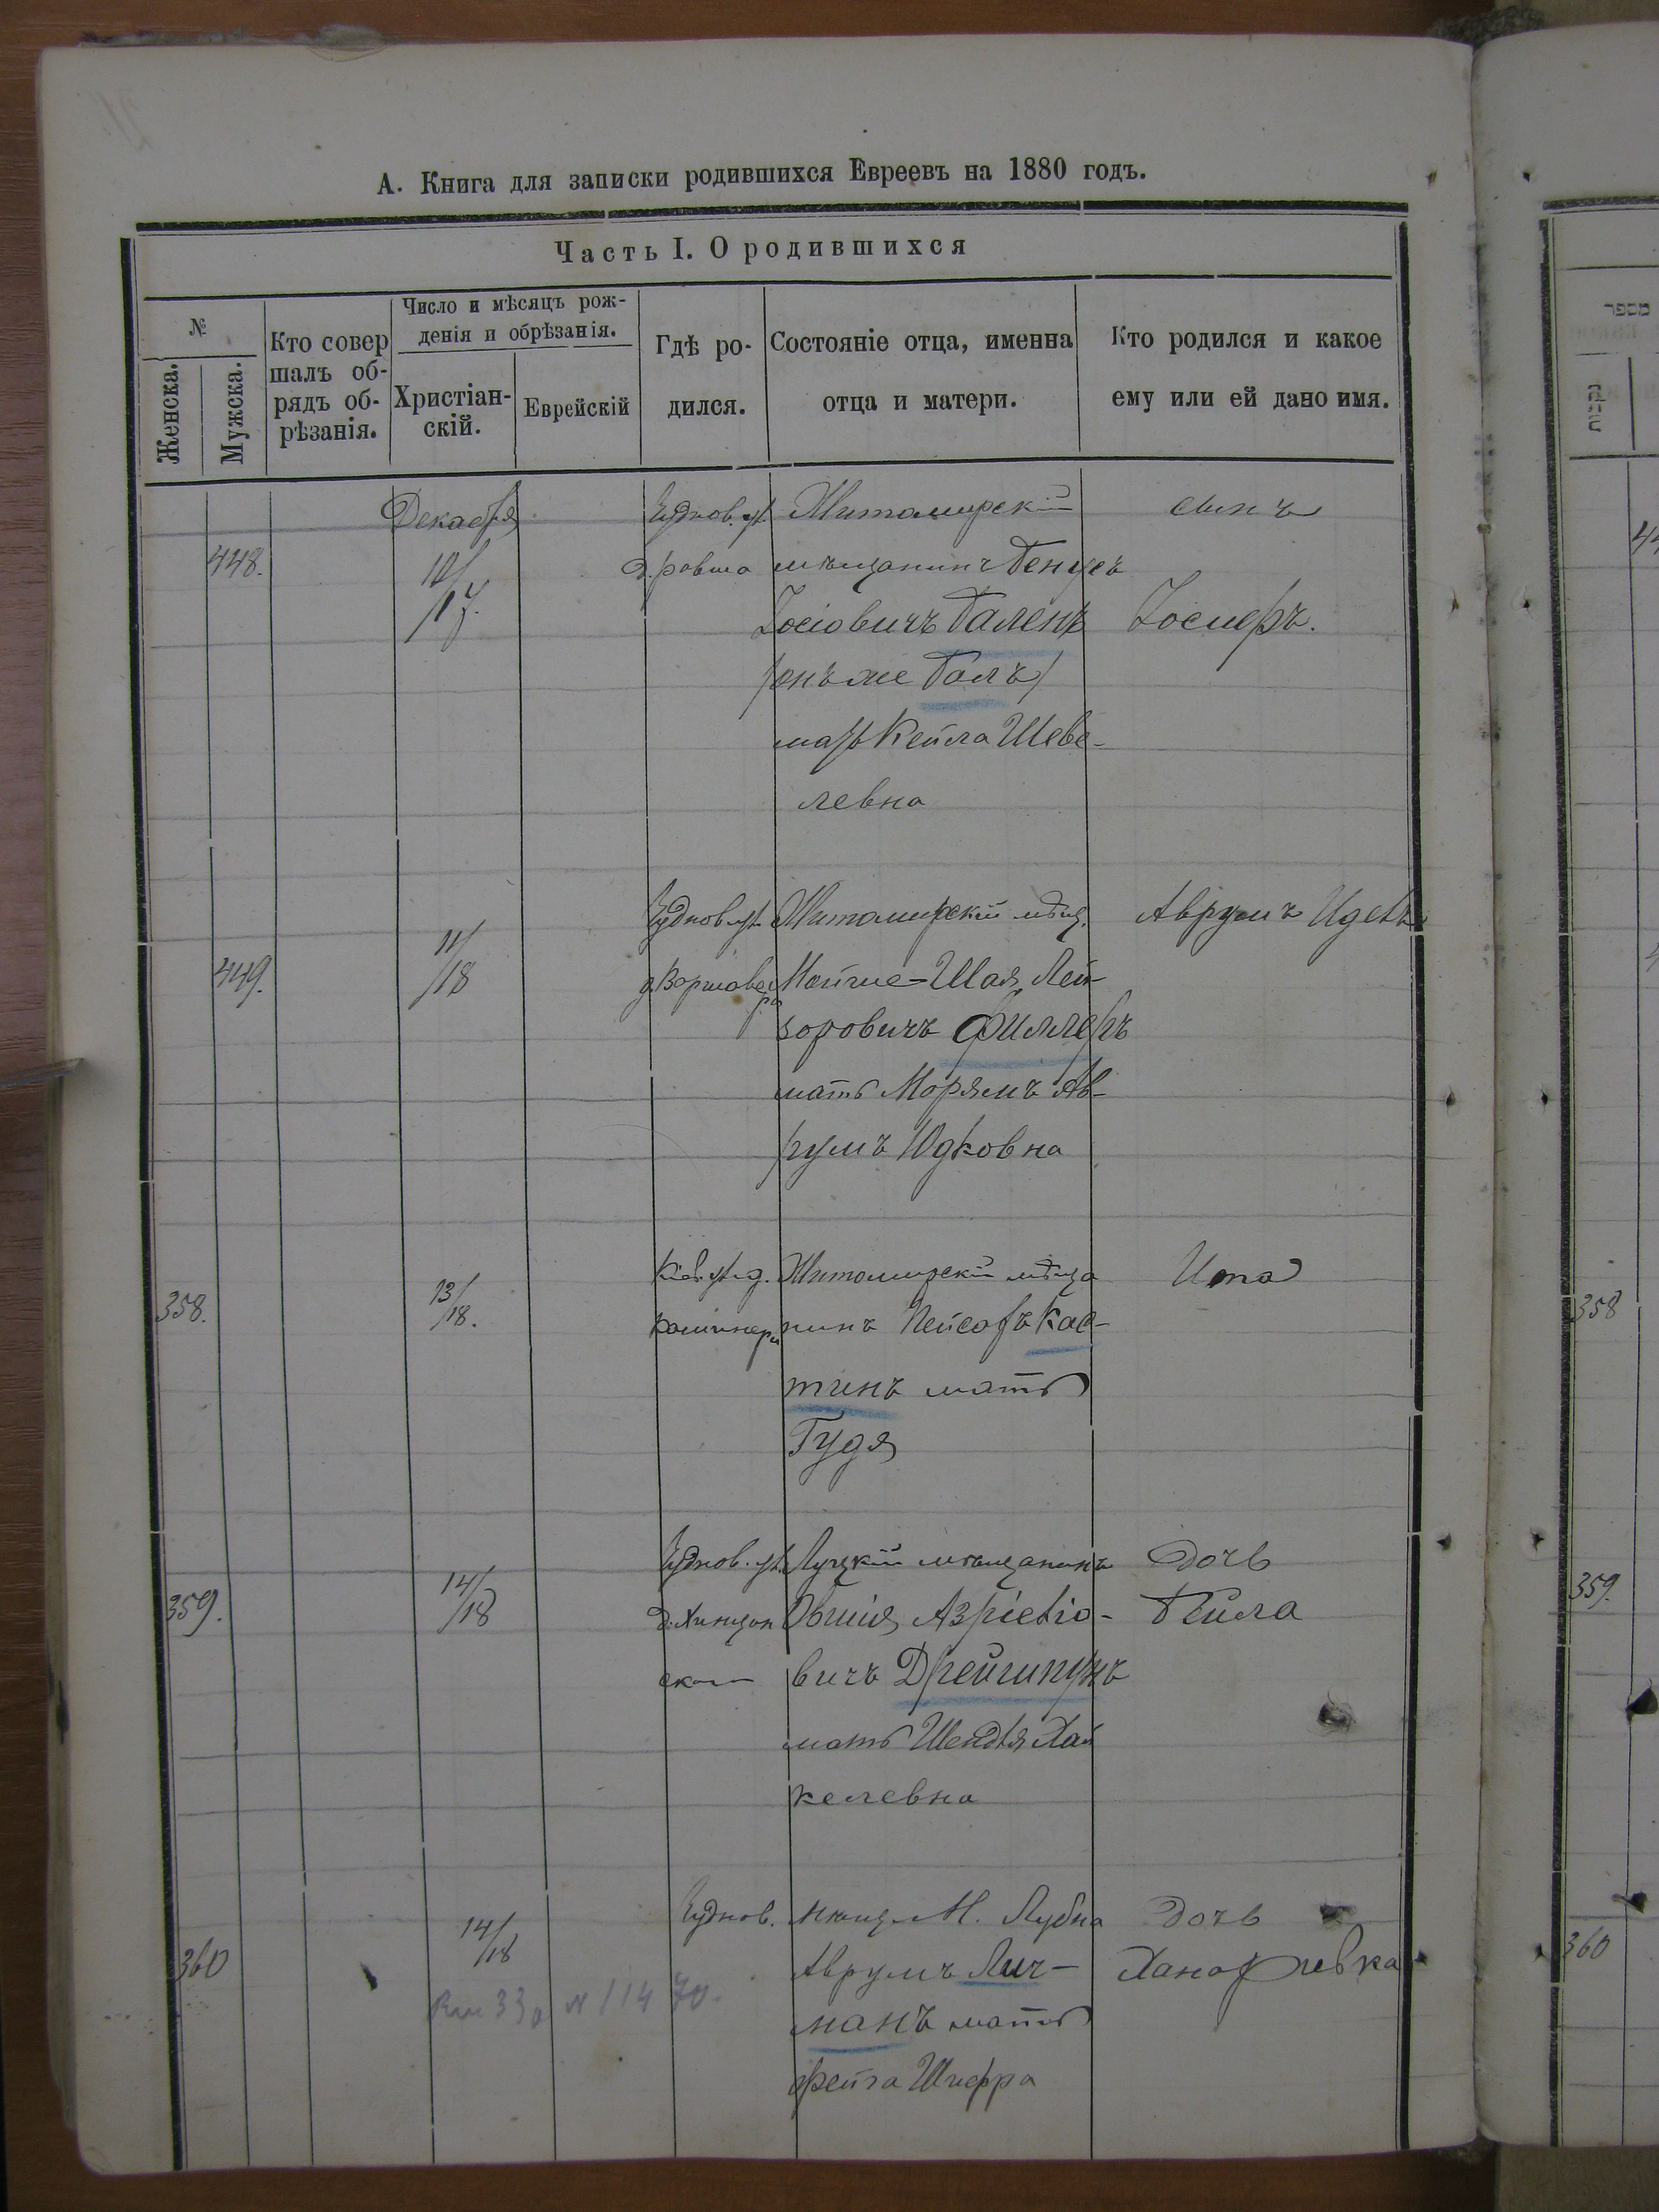 А. Книга для записки родившихся Евреевъ на 1880 годъ.
Часть I. О родившихся
№
Женска.
Мужска.
Кто совер
шалъ об-
рядъ об-
рѣзанія.
Число и мѣсяцъ рож-
денія и обрѣзанія.
Христіан-
скій.
Еврейскій
Гдѣ ро-
дился.
Состояніе отца, именна
отца и матери.
Кто родился и какое
ему или ей дано имя.
Декабря
448.
10/
/17.
Чуднов. ул.
Житомирскій
мѣщанинъ Бенцеъ
Іосіовичъ Галенъ
/онъ же Галъ/
мать Кейла Шеве-
левна
сынъ
Іосифъ.
449.
11/
/18
Чуднов ул.
Житомирскій мѣщ.
Мойше-Шая Лей-
зоровичъ Филлеръ
мать Морямъ Ав-
румъ Юдковна
Аврумъ Идель
358.
13/
/18.
Кіев. ул. д.
Житомирскій мѣща
нинъ Пейсахъ Кас-
тинъ мать
Гудя
Ита
359.
14/
/18
Чуднов. ул.
Луцкій мѣщанинъ
Овшія Азріеліо-
вичъ
мать Шендля Хай
келевна
Дочь
Бейла
360
14/
/18
Чуднов.
мѣщ М. Лубна
Аврумъ Лич-
манъ мать
Фейга Шифра
Дочь
Хана Ривка
33 N 114 70.
מספר
358
359.
360